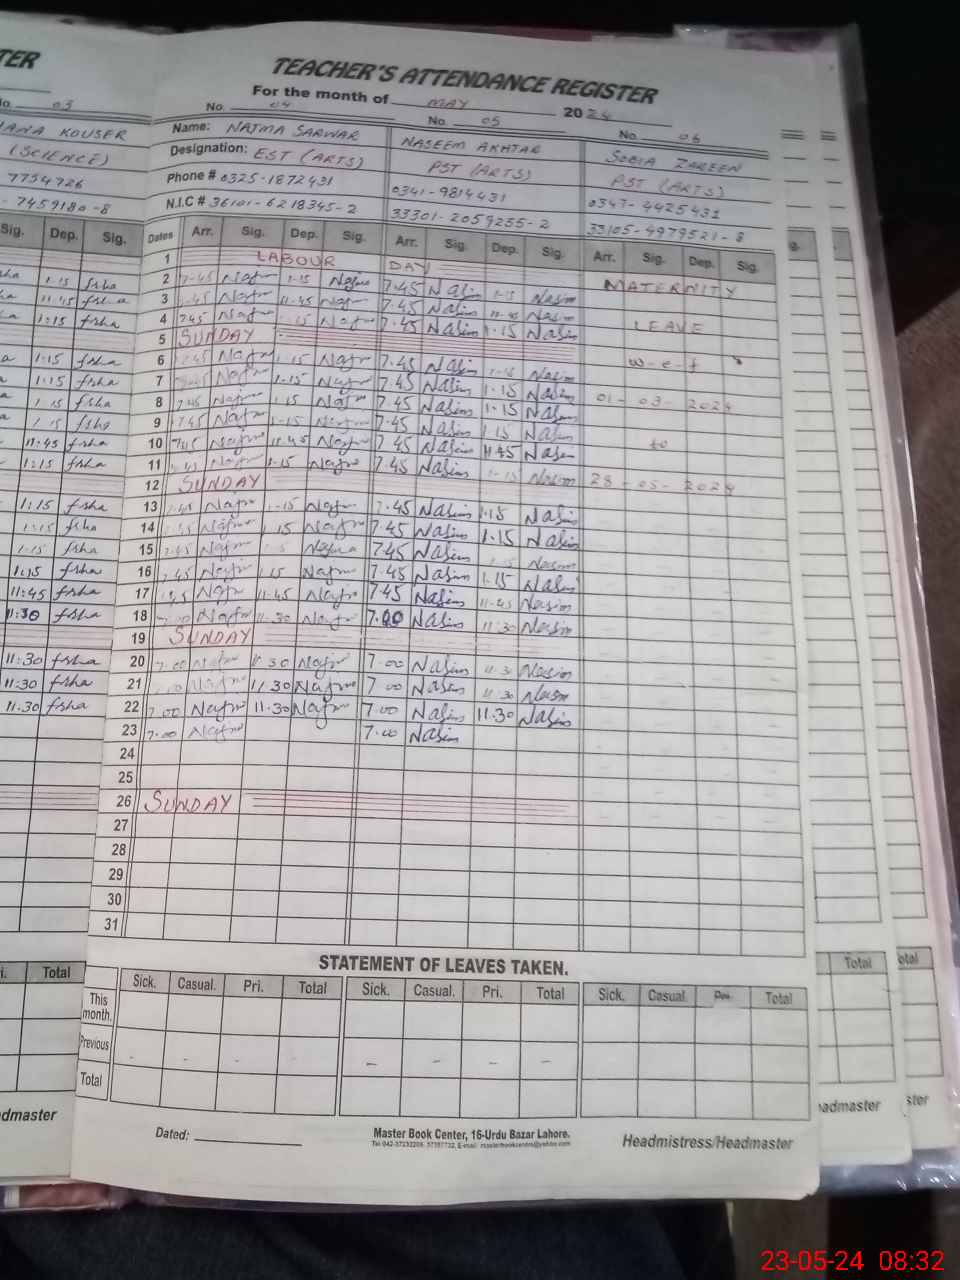 TEACHER'S ATTENDANCE REGISTER
For the month of MAY 2024
No. 03 No. 04 No. 05 No. 06
KOUSER Name: NAJMA SARWAR NASEEM AKHTAR SOBIA ZAREEN
(SCIENCE) Designation: EST (ARTS) PST (ARTS) PST (ARTS)
7754726 Phone # 0325-1872431 0341-9814431 0347-4425431
7459180-8 N.I.C # 36101-6218345-2 33301-2059255-2 33105-4979521-8
Sig. Dep. Sig. Dates Arr. Sig. Dep. Sig. Arr. Sig. Dep. Sig. Arr. Sig. Dep. Sig.
1 LABOUR DAY
1.15 fsha 2 7.45 Najm 1.15 Najma 7.45 Nasim 1.15 Nasim MATERNITY
11.45 fsha 3 7.45 Najm 11.45 Najm 7.45 Nasim 11.45 Nasim
1.15 fsha 4 7.45 Najm 1.15 Najm 7.45 Nasim 1.15 Nasim LEAVE
5 SUNDAY
1.15 fsha 6 7.45 Najm 1.15 Najm 7.45 Nasim 1.15 Nasim w-e-f
1.15 fsha 7 7.45 Najm 1.15 Najm 7.45 Nasim 1.15 Nasim
1.15 fsha 8 7.45 Najm 1.15 Najm 7.45 Nasim 1.15 Nasim 01-03-2024
1.15 fsha 9 7.45 Najm 1.15 Najm 7.45 Nasim 1.15 Nasim
11.45 fsha 10 7.45 Najm 11.45 Najm 7.45 Nasim 11.45 Nasim to
1.15 fsha 11 7.45 Najm 1.15 Najm 7.45 Nasim 1.15 Nasim
12 SUNDAY 28-05-2024
1.15 fsha 13 7.45 Najm 1.15 Najm 7.45 Nasim 1.15 Nasim
1.15 fsha 14 Najm 1.15 Najm 7.45 Nasim 1.15 Nasim
1.15 fsha 15 7.45 Najm Najma 7.45 Nasim 1.15 Nasim
1.15 fsha 16 7.45 Najm 1.15 Najm 7.45 Nasim 1.15 Nasim
11.45 fsha 17 Najm 11.45 Najm 7.45 Nasim 11.45 Nasim
11.30 fsha 18 7.00 Najm 11.30 Najm 7.00 Nasim 11.30 Nasim
19 SUNDAY
11.30 fsha 20 7.00 Najm 11.30 Najm 7.00 Nasim 11.30 Nasim
11.30 fsha 21 Najm 11.30 Najm 7.00 Nasim 11.30 Nasim
11.30 fsha 22 7.00 Najm 11.30 Najm 7.00 Nasim 11.30 Nasim
23 7.00 Najm 7.00 Nasim
24
25
26 SUNDAY
27
28
29
30
31
STATEMENT OF LEAVES TAKEN.
Total Sick. Casual. Pri. Total Sick. Casual. Pri. Total Sick. Casual. Total Total
This month.
Previous - - - - - - -
Total
Dated: Master Book Center, 16-Urdu Bazar Lahore. Headmistress/Headmaster
23-05-24 08:32